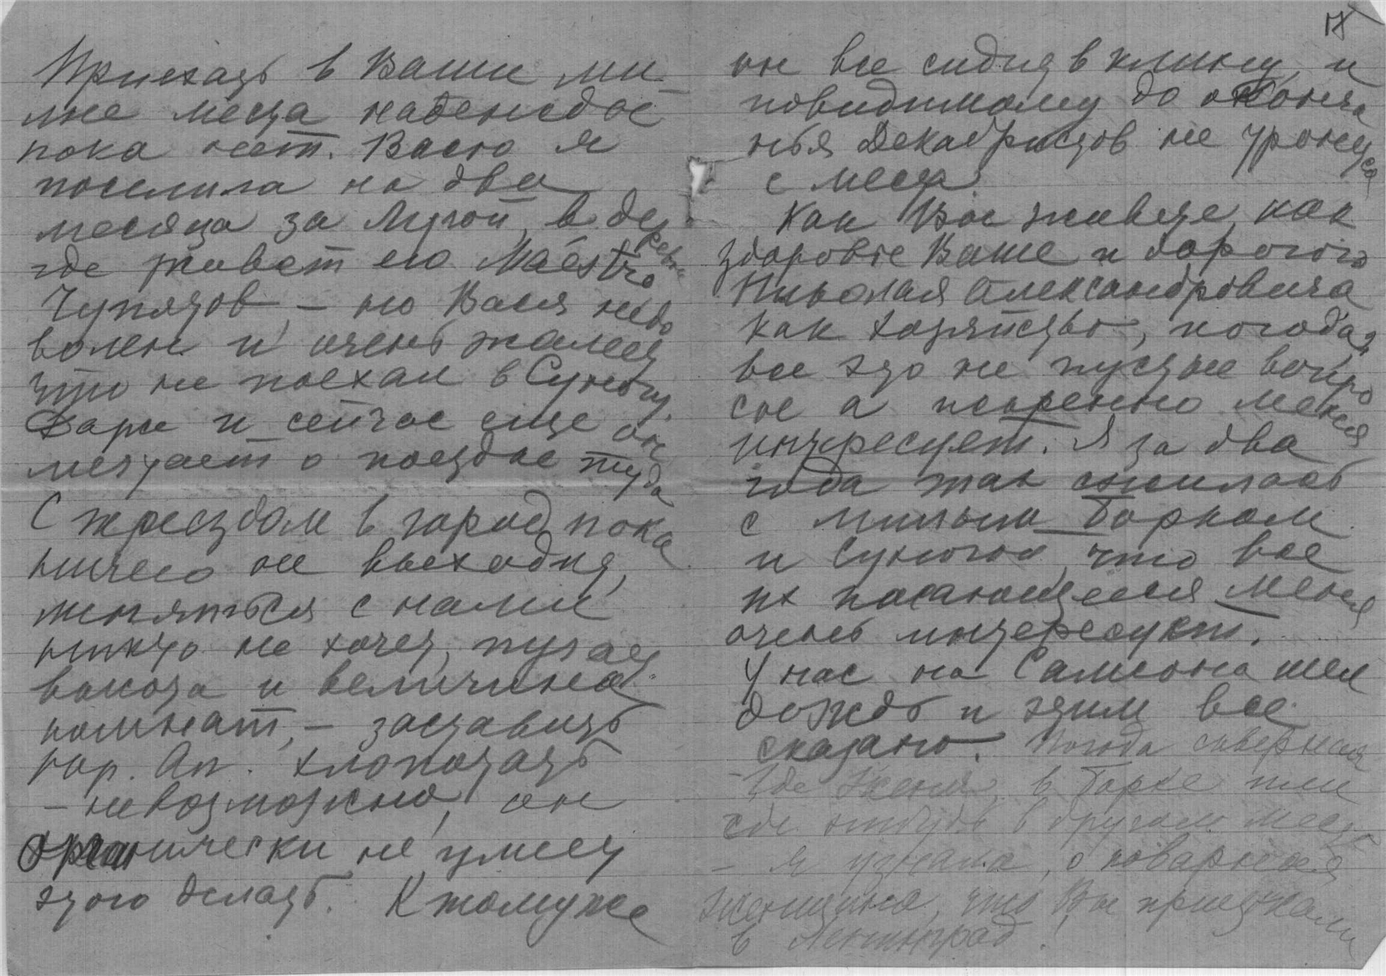 Приехать в Ваши ми-
лые места надежды
пока нет. Васю я
поселила на два
месяца за Лугой, в деревне
где живет его Maestro
Чупятов — но Вася недо
волен и очень жалеет
что не поехал в Суногу.
Даже и сейчас еще он
мечтает о поездке туда
С переездом в город пока
ничего не выходит,
меняться с нами
никто не хочет, пугает
высота и величина
комнат, — заставить
Юр. Ал. хлопотать
— невозможно, он
органически не умеет
этого делать. К тому же
IX
он все сидит в Клину и
повидимому до оконча
нья Декабристов не тронется
с места.
Как Вы живете, как
здоровье Ваше и дорогого
Николая Александровича
как хозяйство, погода,
все это не пустые вопро
сы а искренно меня
интересует. Я за два
года так сжилась
с милым Борком
и Суногой, что все
их касающееся меня
очень интересует.
У нас на Самсона шел
дождь и этим все
сказано. Погода скверная
Где Женя, в Борке или
где нибудь в другом месте
— Я узнала, о коварная
женщина, что Вы приезжали
в Ленинград!